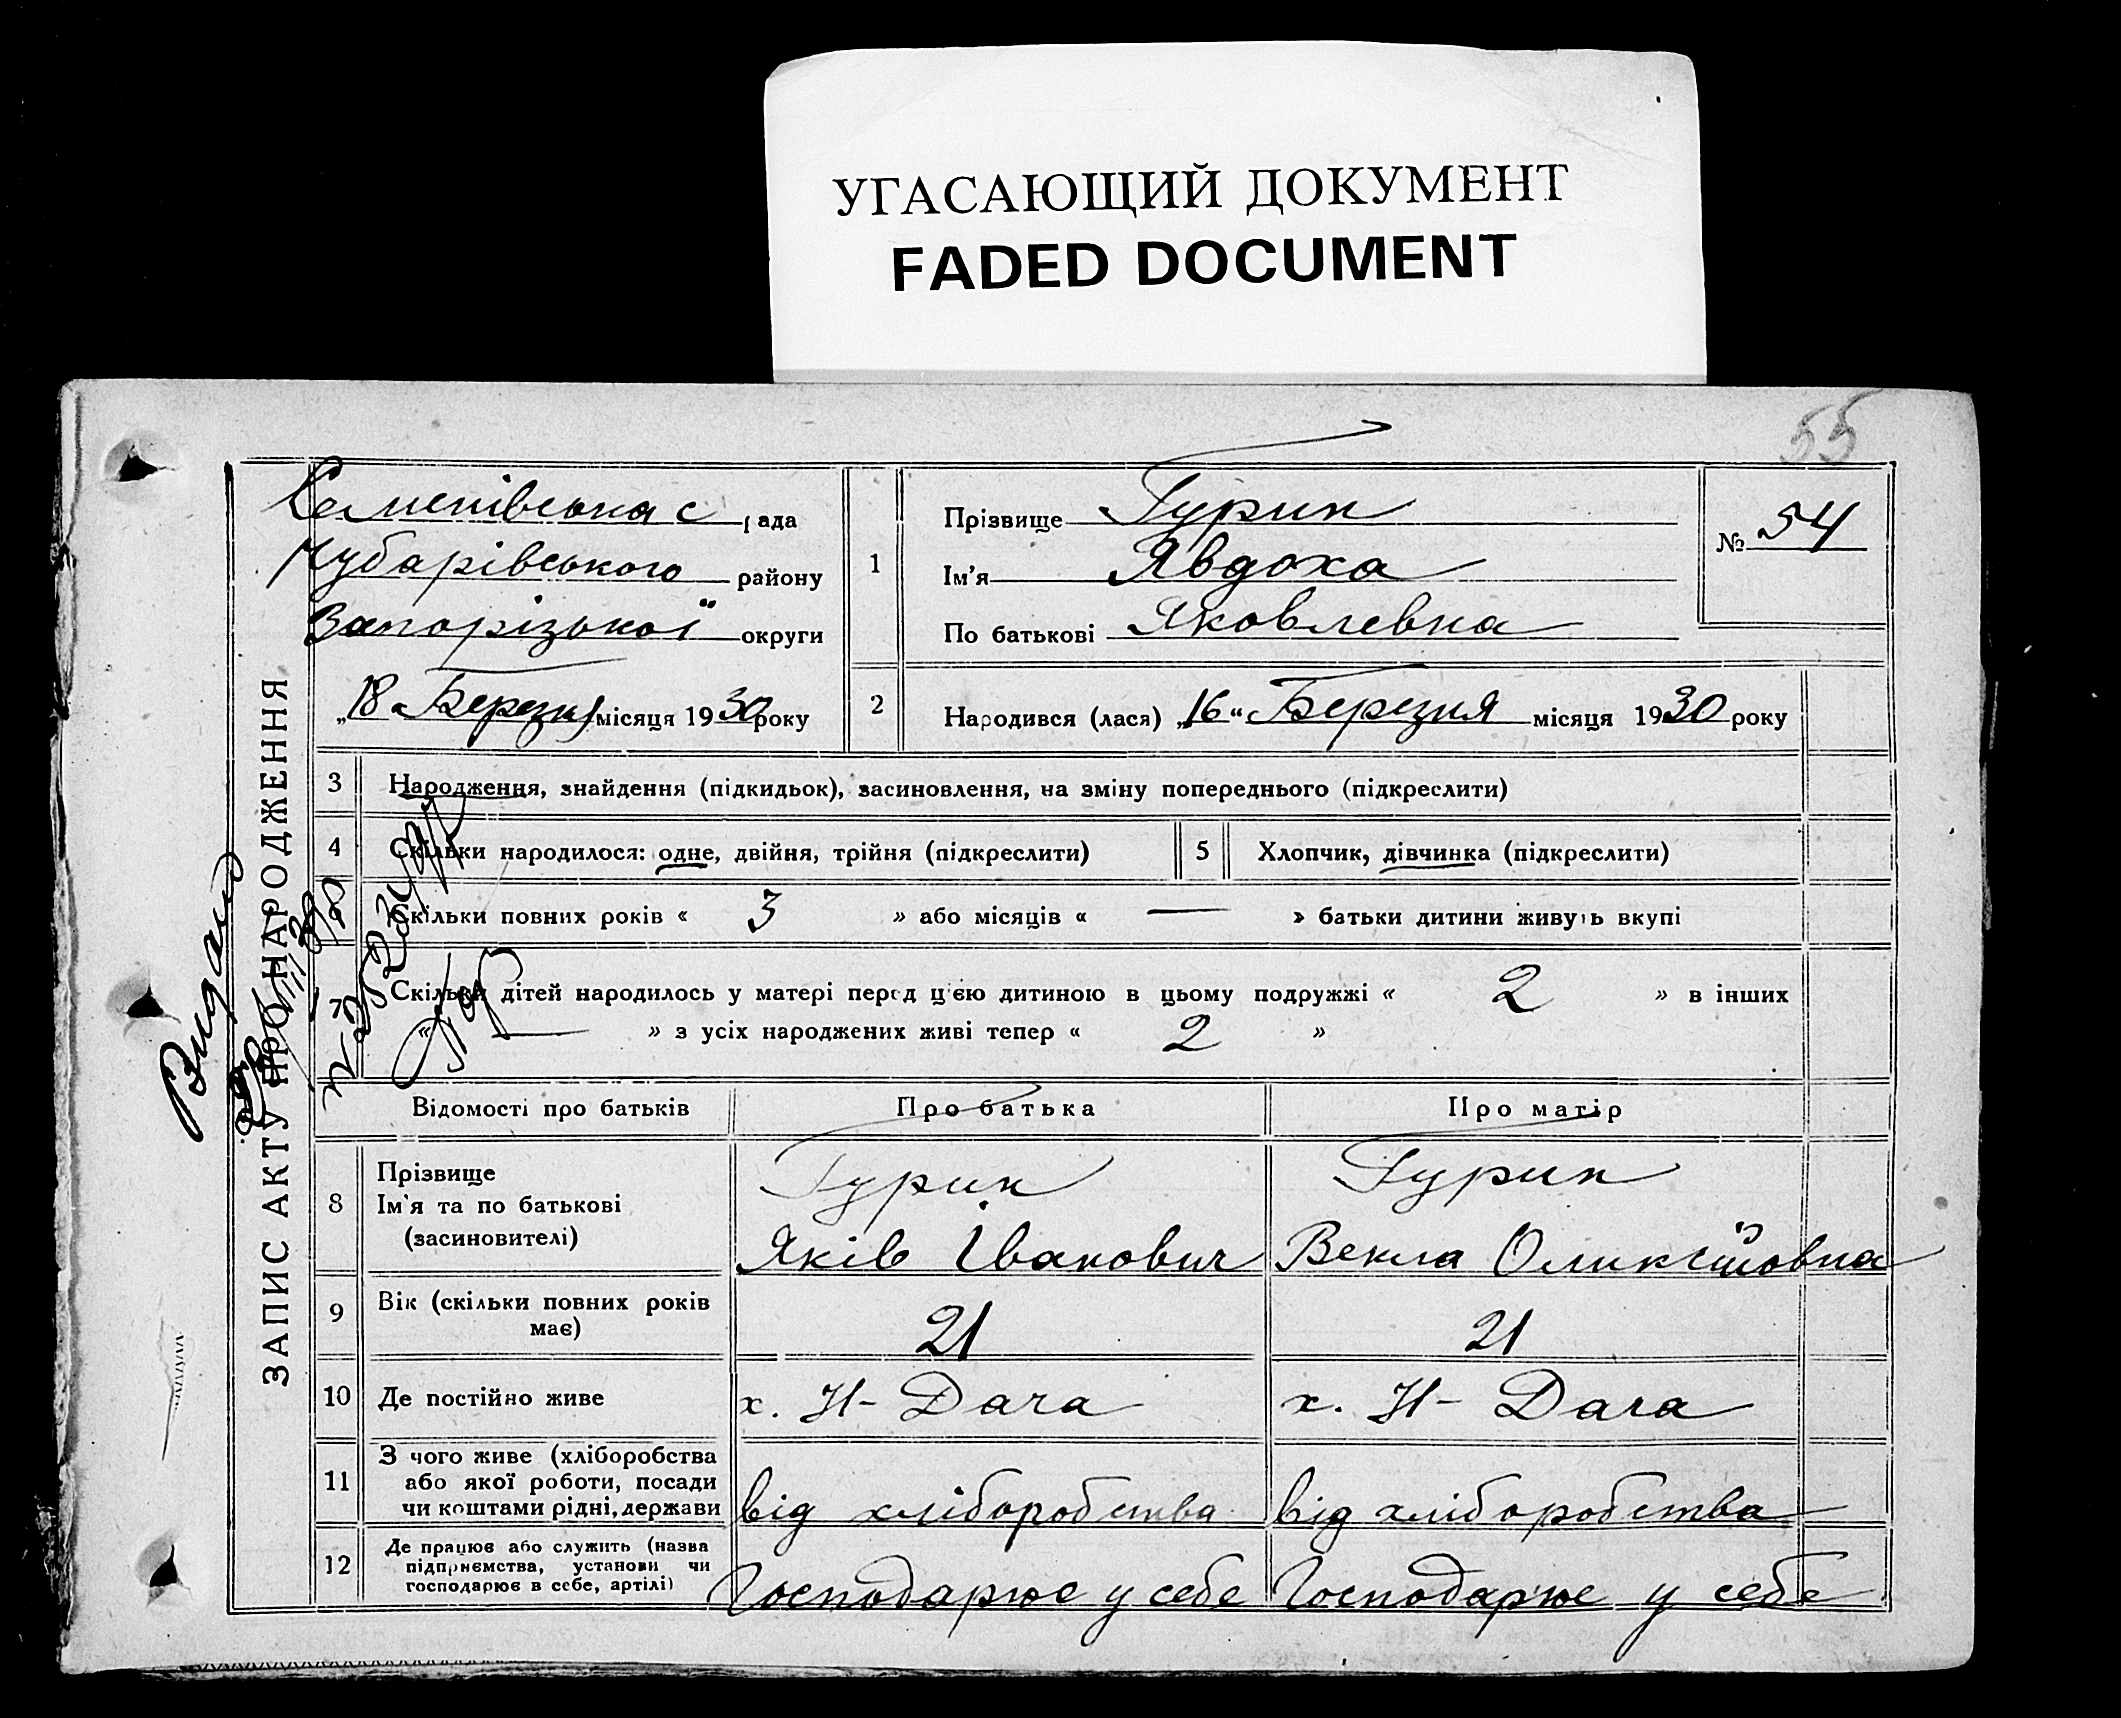 УГАСАЮЩИЙ ДОКУМЕНТ
FADED DOCUMENT
55
ЗАПИС АКТУ ПРО НАРОДЖЕННЯ
с рада
Чубарівського району
Запорізької округи
„18" Березня місяця 1930 року
1
Прізвище Гурин
Ім'я Явдоха
По батькові Яковлевна
№ 54
2
Народився (лася) „16" Березня місяця 1930 року
3 Народження, знайдення (підкидьок), засиновлення, на зміну попереднього (підкреслити)
4 Скільки народилося: одне, двійня, трійня (підкреслити)
5 Хлопчик, дівчинка (підкреслити)
Скільки повних років « 3 » або місяців « — » батьки дитини живуть вкупі
7 Скільки дітей народилось у матері перед цією дитиною в цьому подружжі « 2 » в інших
« — » з усіх народжених живі тепер « 2 »
Видано
Відомості про батьків Про батька Про матір
8 Прізвище Ім'я та по батькові (засиновителі)
Гурин
Яків Іванович
Гурин
Векла Оликсіїовна
9 Вік (скільки повних років має) 21 21
10 Де постійно живе х. Н-Дача х. Н-Дача
11 З чого живе (хліборобства або якої роботи, посади чи коштами рідні, держави
від хліборобства від хліборобства
12 Де працює або служить (назва підприємства, установи чи господарює в себе, артілі)
Господарює у себе Господарює у себе